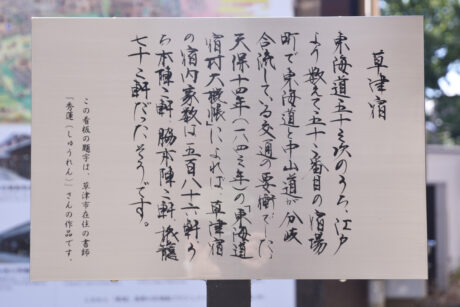 草津宿
東海道五十三次のうち、江戸
より数えて五十二番目の宿場
町で東海道と中山道が分岐
合流している交通の要衝でした。
天保十四年(一八四三年)の「東海道
宿村大概帳」によれば、草津宿
の宿内家数は五百八十六軒、う
ち本陣二軒、脇本陣二軒、旅籠
七十二軒だったそうです。
この看板の題字は、草津市在住の書師
「秀蓮(しゅうれん)」さんの作品です。